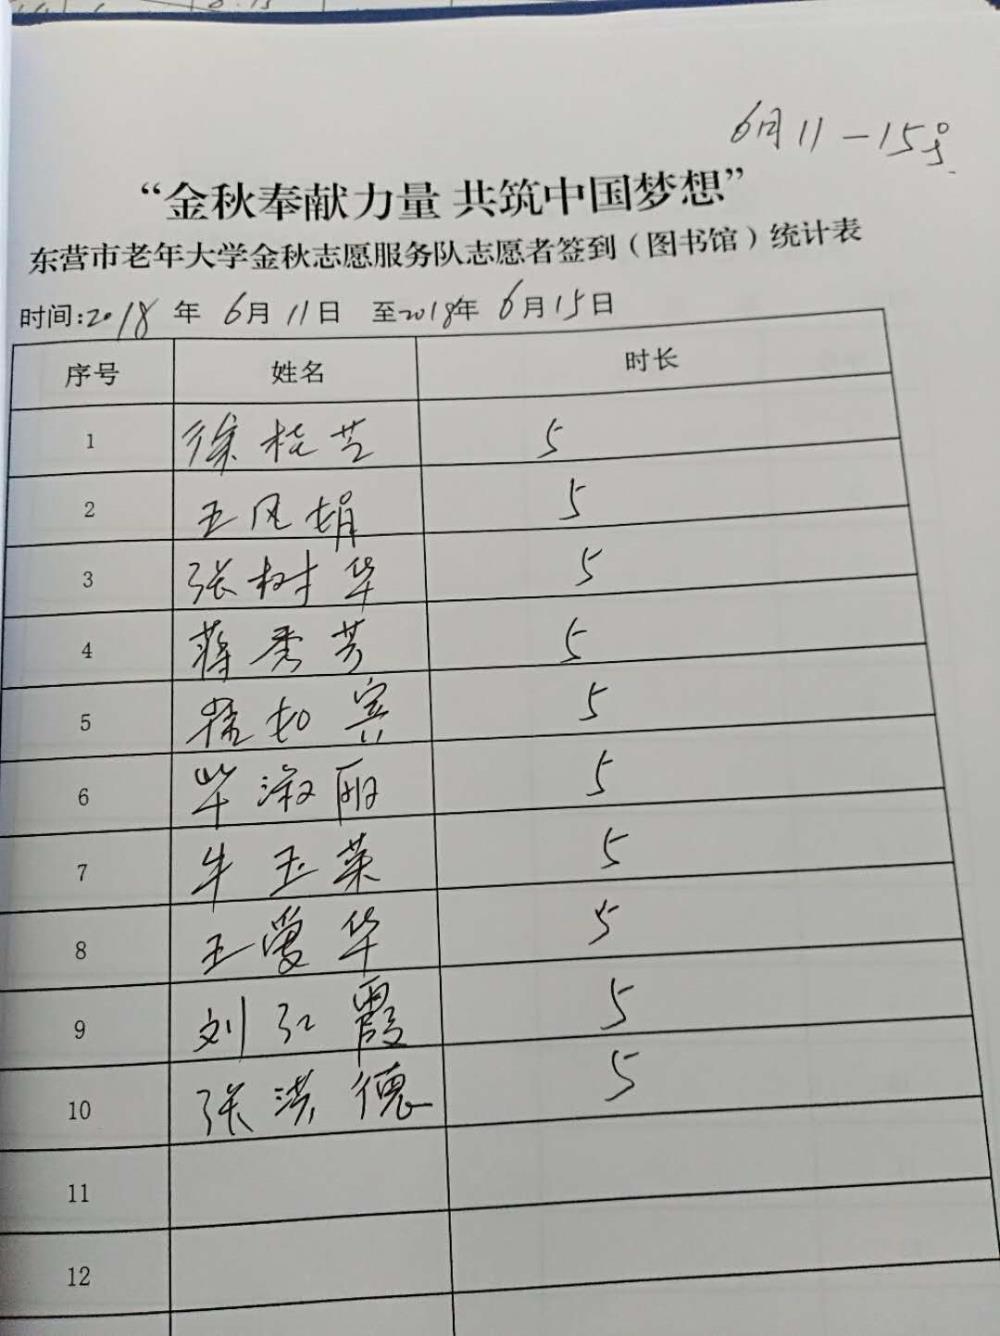 6月11-15号
“金秋奉献力量 共筑中国梦想”
东营市老年大学金秋志愿服务队志愿者签到（图书馆）统计表
时间:2018年 6月11日 至2018年 6月15日
序号 姓名 时长
1 徐桂芝 5
2 王凤娟 5
3 张树华 5
4 蒋秀芳 5
5 如宾 5
6 毕淑丽 5
7 牛玉菜 5
8 王爱华 5
9 刘红霞 5
10 张洪德 5
11
12